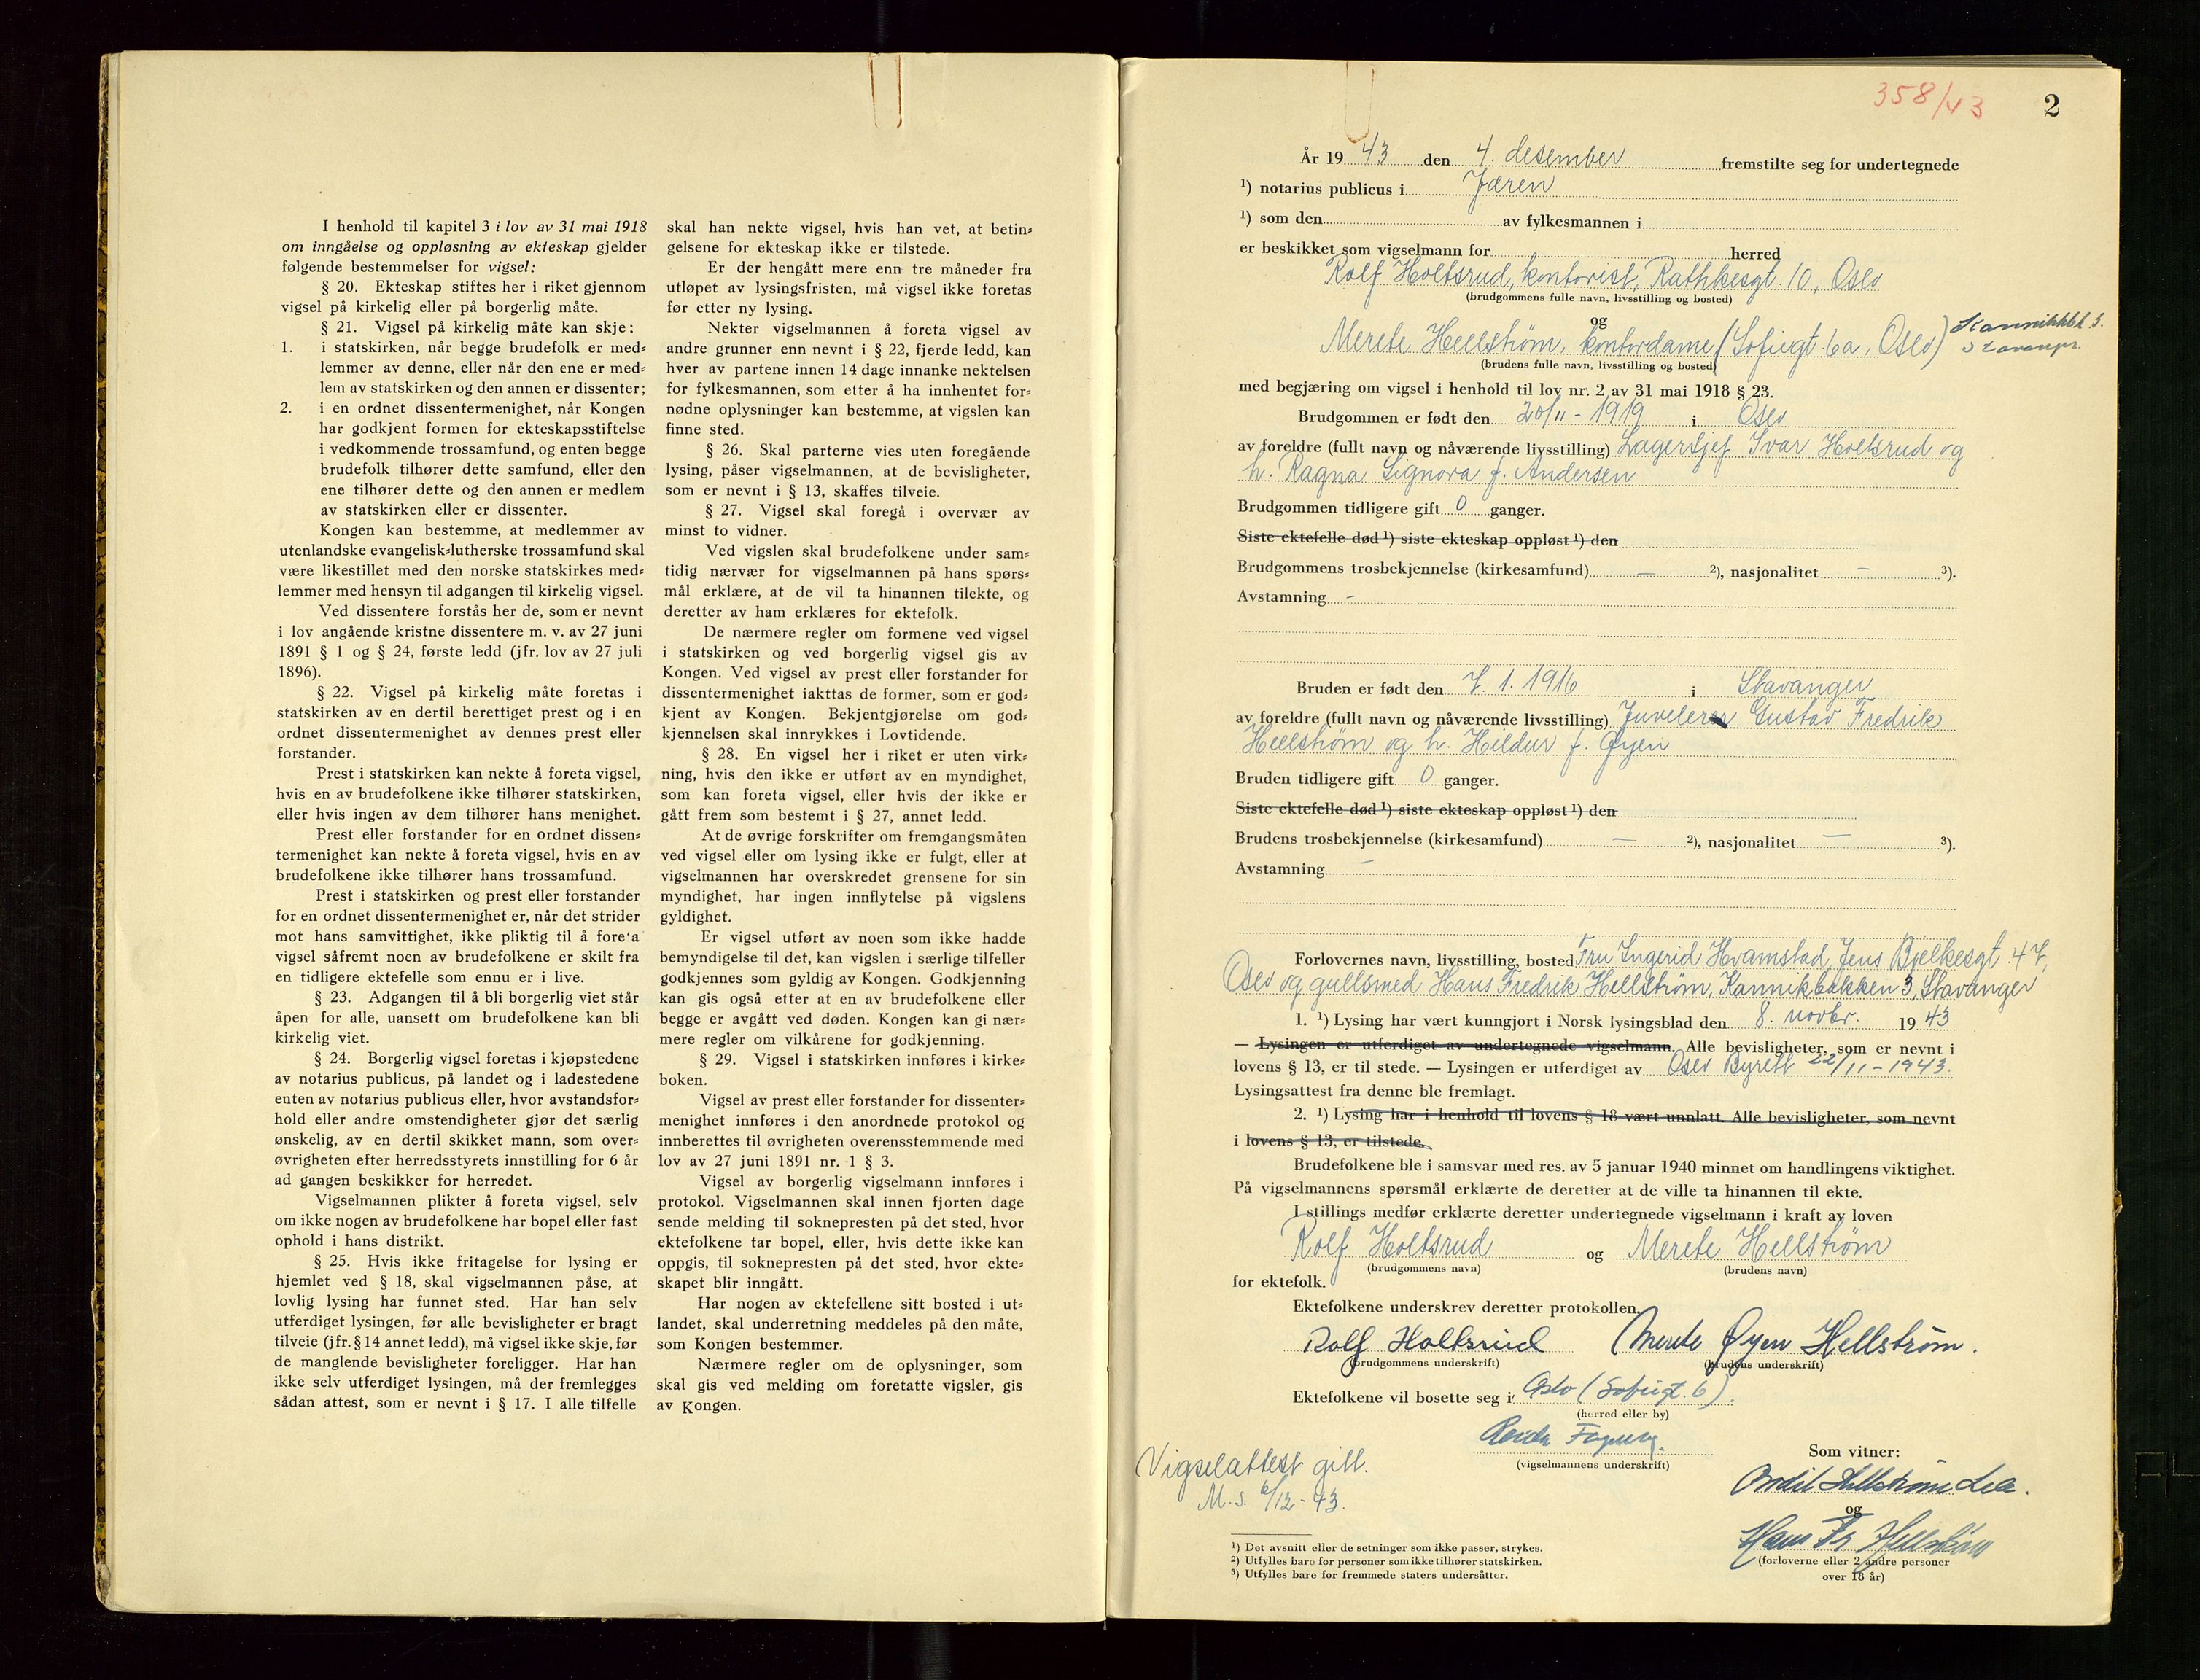 I henhold til kapitel 3 i lov av 31 mai 1918
om inngåelse og oppløsning av ekteskap gjelder
følgende bestemmelser for vigsel:
§ 20. Ekteskap stiftes her i riket gjennom
vigsel på kirkelig eller på borgerlig måte.
§ 21. Vigsel på kirkelig måte kan skje:
1. i statskirken, når begge brudefolk er med=
lemmer av denne, eller når den ene er med=
lem av statskirken og den annen er dissenter;
2. i en ordnet dissentermenighet, når Kongen
har godkjent formen for ekteskapsstiftelse
i vedkommende trossamfund, og enten begge
brudefolk tilhører dette samfund, eller den
ene tilhører dette og den annen er medlem
av statskirken eller er dissenter.
Kongen kan bestemme, at medlemmer av
utenlandske evangelisk=lutherske trossamfund skal
være likestillet med den norske statskirkes med=
lemmer med hensyn til adgangen til kirkelig vigsel.
Ved dissentere forstås her de, som er nevnt
i lov angående kristne dissentere m. v. av 27 juni
1891 § 1 og § 24, første ledd (jfr. lov av 27 juli
1896).
§ 22. Vigsel på kirkelig måte foretas i
statskirken av en dertil berettiget prest og i en
ordnet dissentermenighet av dennes prest eller
forstander.
Prest i statskirken kan nekte å foreta vigsel,
hvis en av brudefolkene ikke tilhører statskirken,
eller hvis ingen av dem tilhører hans menighet.
Prest eller forstander for en ordnet dissen=
termenighet kan nekte å foreta vigsel, hvis en av
brudefolkene ikke tilhører hans trossamfund.
Prest i statskirken og prest eller forstander
for en ordnet dissentermenighet er, når det strider
mot hans samvittighet, ikke pliktig til å fore'a
vigsel såfremt noen av brudefolkene er skilt fra
en tidligere ektefelle som ennu er i live.
§ 23. Adgangen til å bli borgerlig viet står
åpen for alle, uansett om brudefolkene kan bli
kirkelig viet.
§ 24. Borgerlig vigsel foretas i kjøpstedene
av notarius publicus, på landet og i ladestedene
enten av notarius publicus eller, hvor avstandsfor=
hold eller andre omstendigheter gjør det særlig
ønskelig, av en dertil skikket mann, som over=
øvrigheten efter herredsstyrets innstilling for 6 år
ad gangen beskikker for herredet.
Vigselmannen plikter å foreta vigsel, selv
om ikke nogen av brudefolkene har bopel eller fast
ophold i hans distrikt.
§ 25. Hvis ikke fritagelse for lysing er
hjemlet ved § 18, skal vigselmannen påse, at
lovlig lysing har funnet sted. Har han selv
utferdiget lysingen, før alle bevisligheter er bragt
tilveie (jfr. § 14 annet ledd), må vigsel ikke skje, før
de manglende bevisligheter foreligger. Har han
ikke selv utferdiget lysingen, må der fremlegges
sådan attest, som er nevnt i § 17. I alle tilfelle
skal han nekte vigsel, hvis han vet, at betin=
gelsene for ekteskap ikke er tilstede.
Er der hengått mere enn tre måneder fra
utløpet av lysingsfristen, må vigsel ikke foretas
før etter ny lysing.
Nekter vigselmannen å foreta vigsel av
andre grunner enn nevnt i § 22, fjerde ledd, kan
hver av partene innen 14 dage innanke nektelsen
for fylkesmannen, som etter å ha innhentet for=
nødne oplysninger kan bestemme, at vigslen kan
finne sted.
§ 26. Skal parterne vies uten foregående
lysing, påser vigselmannen, at de bevisligheter,
som er nevnt i § 13, skaffes tilveie.
§ 27. Vigsel skal foregå i overvær av
minst to vidner.
Ved vigslen skal brudefolkene under sam=
tidig nærvær for vigselmannen på hans spørs=
mål erklære, at de vil ta hinannen tilekte, og
deretter av ham erklæres for ektefolk.
De nærmere regler om formene ved vigsel
i statskirken og ved borgerlig vigsel gis av
Kongen. Ved vigsel av prest eller forstander for
dissentermenighet iakttas de former, som er god=
kjent av Kongen. Bekjentgjørelse om god=
kjennelsen skal innrykkes i Lovtidende.
§ 28. En vigsel her i riket er uten virk=
ning, hvis den ikke er utført av en myndighet,
som kan foreta vigsel, eller hvis der ikke er
gått frem som bestemt i § 27, annet ledd.
At de øvrige forskrifter om fremgangsmåten
ved vigsel eller om lysing ikke er fulgt, eller at
vigselmannen har overskredet grensene for sin
myndighet, har ingen innflytelse på vigslens
gyldighet.
Er vigsel utført av noen som ikke hadde
bemyndigelse til det, kan vigslen i særlige tilfeller
godkjennes som gyldig av Kongen. Godkjenning
kan gis også etter at en av brudefolkene eller
begge er avgått ved døden. Kongen kan gi nær=
mere regler om vilkårene for godkjenning.
§ 29. Vigsel i statskirken innføres i kirke=
boken.
Vigsel av prest eller forstander for dissenter=
menighet innføres i den anordnede protokol og
innberettes til øvrigheten overensstemmende med
lov av 27 juni 1891 nr. 1 § 3.
Vigsel av borgerlig vigselmann innføres i
protokol. Vigselmannen skal innen fjorten dage
sende melding til soknepresten på det sted, hvor
ektefolkene tar bopel, eller, hvis dette ikke kan
oppgis, til soknepresten på det sted, hvor ekte=
skapet blir inngått.
Har nogen av ektefellene sitt bosted i ut=
landet, skal underretning meddeles på den måte,
som Kongen bestemmer.
Nærmere regler om de oplysninger, som
skal gis ved melding om foretatte vigsler, gis
av Kongen.
358/43 2
År 19 43 den 4. desember fremstilte seg for undertegnede
¹) notarius publicus i Jæren
¹) som den av fylkesmannen i
er beskikket som vigselmann for herred
Rolf Holtsrud, kontorist, Rathkesgt. 10, Oslo
(brudgommens fulle navn, livsstilling og bosted)
og
Merete Hellstrøm, kontordame (Sofiegt. 6a, Oslo) Kannikbk 3.
Stavanger.
(brudens fulle navn, livsstilling og bosted)
med begjæring om vigsel i henhold til lov nr. 2 av 31 mai 1918 § 23.
Brudgommen er født den 20/11 - 1919 i Oslo
av foreldre (fullt navn og nåværende livsstilling) Lagersjef Ivar Holtsrud og
h. Ragna Signora f. Andersen
Brudgommen tidligere gift 0 ganger.
Siste ektefelle død ¹) siste ekteskap oppløst ¹) den
Brudgommens trosbekjennelse (kirkesamfund) — ²), nasjonalitet — ³).
Avstamning -
Bruden er født den 7. 1. 1916 i Stavanger
av foreldre (fullt navn og nåværende livsstilling) Juveler Gustav Fredrik
Hellstrøm og h. Hildur f. Øyen
Bruden tidligere gift 0 ganger.
Siste ektefelle død ¹) siste ekteskap oppløst ¹) den
Brudens trosbekjennelse (kirkesamfund) — ²), nasjonalitet — ³).
Avstamning —
Forlovernes navn, livsstilling, bosted Fru Ingerid Hvamstad, Jens Bjelkesgt. 47,
Oslo og gullsmed Hans Fredrik Hellstrøm, Kannikbakken 3, Stavanger
1. ¹) Lysing har vært kunngjort i Norsk lysingsblad den 8. novbr. 19 43
— Lysingen er utferdiget av undertegnede vigselmann. Alle bevisligheter, som er nevnt i
lovens § 13, er til stede. — Lysingen er utferdiget av Oslo Byrett 22/11 - 1943.
Lysingsattest fra denne ble fremlagt.
2. ¹) Lysing har i henhold til lovens § 18 vært unnlatt. Alle bevisligheter, som nevnt
i lovens § 13, er tilstede.
Brudefolkene ble i samsvar med res. av 5 januar 1940 minnet om handlingens viktighet.
På vigselmannens spørsmål erklærte de deretter at de ville ta hinannen til ekte.
I stillings medfør erklærte deretter undertegnede vigselmann i kraft av loven
Rolf Holtsrud og Merete Hellstrøm
(brudgommens navn) (brudens navn)
for ektefolk.
Ektefolkene underskrev deretter protokollen.
Rolf Holtsrud Merete Øyen Hellstrøm.
(brudgommens underskrift) (brudens underskrift)
Ektefolkene vil bosette seg i Oslo (Sofiegt. 6).
(herred eller by)
(vigselmannens underskrift)
Vigselattest gitt.
M. S. 6/12 - 43.
Som vitner:
Hellstrøm Lea.
og
Hans Fr Hellstrøm
(forloverne eller 2 andre personer
over 18 år)
¹) Det avsnitt eller de setninger som ikke passer, strykes.
²) Utfylles bare for personer som ikke tilhører statskirken.
³) Utfylles bare for fremmede staters undersåtter.